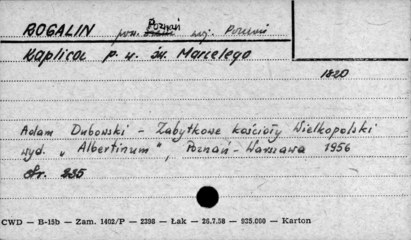 ROGALIN pow. Poznań woj. Poznań
Kaplica p. w. św. Marcelego
1820
Adam Dubowski - Zabytkowe kościoły Wielkopolski
wyd. „Albertinum", Poznań - Warszawa 1956
str. 235
CWD — B-15b — Zam. 1402/P — 2398 — Łak — 26.7.58 — 935.000 — Karton